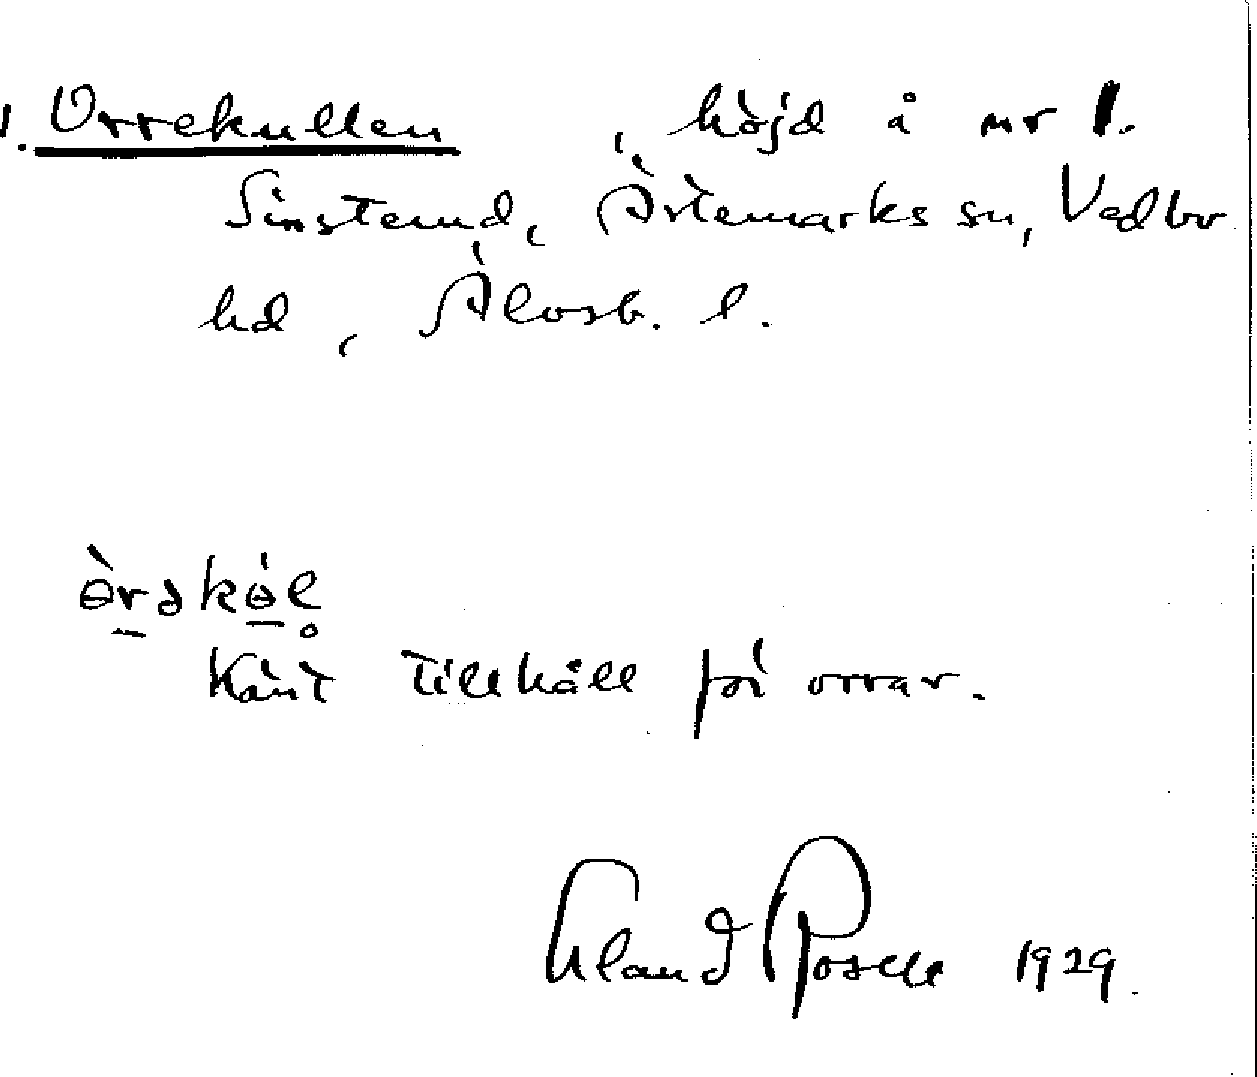 1. Orrekullen, höjd å nr 1.
Ärtemarks sn, Vedbo
hd, Älvsb. l.
Känt tillhåll för orrar.
Erland Rosell 1929.